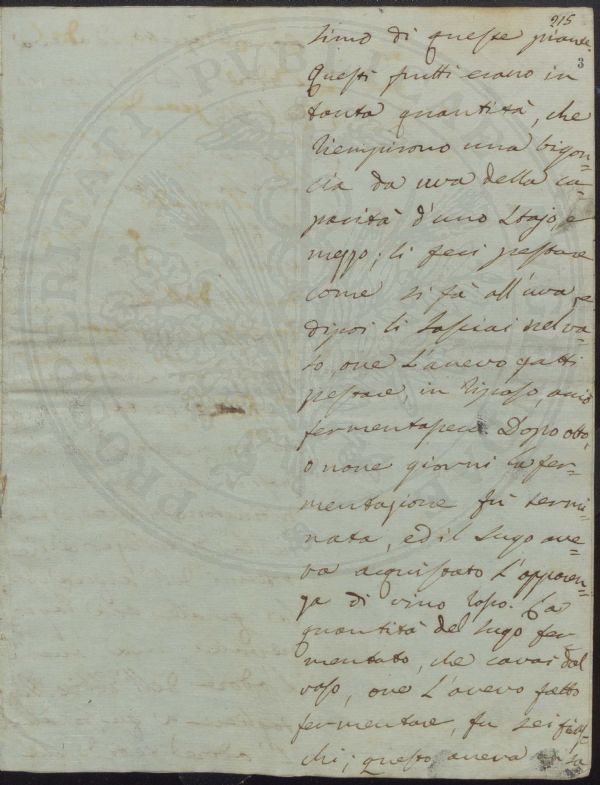 215
3
simo di queste piante.
Questi frutti erano in
tanta quantità, che
riempirono una bigon=
cia da uva della ca=
pacità d'uno Stajo, e
mezzo; li feci pestare
come si fà all'uva, e
dipoi li lasciai nel va=
so, ove l'avevo fatti
pestare, in riposo, acciò
fermentasse. Dopo otto,
o nove giorni la fer=
mentazione fù termi=
nata, ed il sugo ave=
va acquistato l'apparen=
za di vino rosso. La
quantità del sugo fer=
mentato, che cavai dal
vaso, ove l'avevo fatto
fermentare, fu sei fias=
chi; questo aveva
PROSPERITATI PVBLICAE